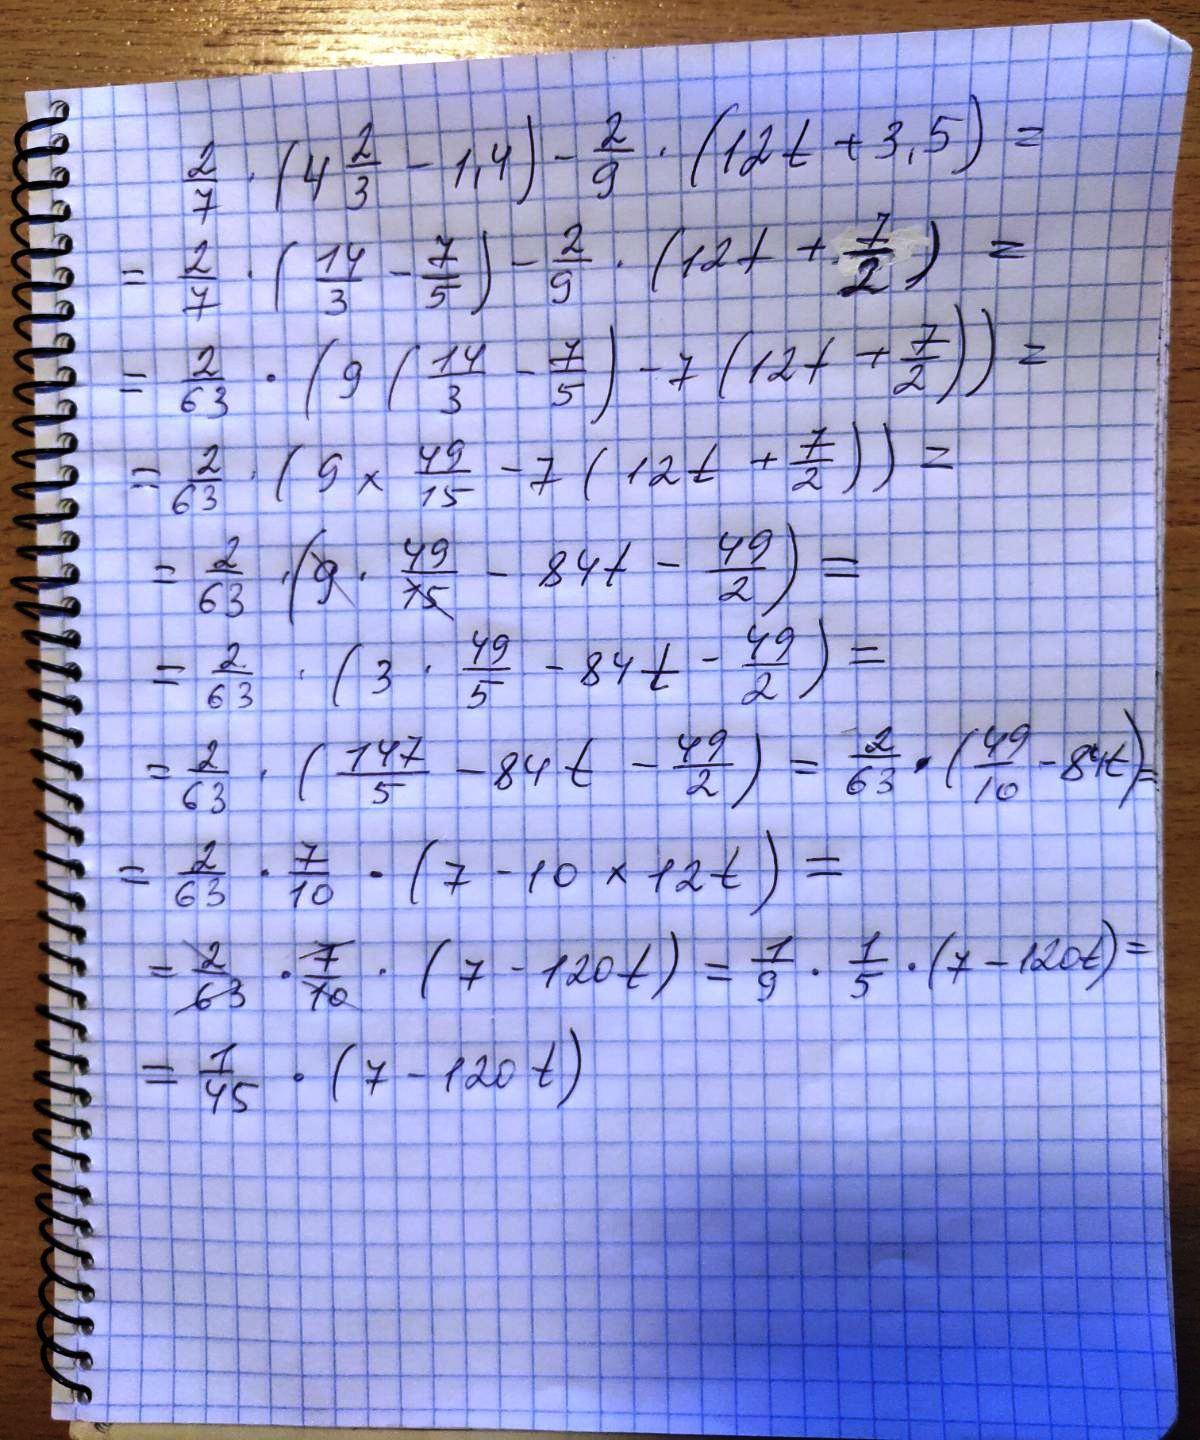 2/7 · (4 2/3 - 1,4) - 2/9 · (12t + 3,5) =
= 2/7 · (14/3 - 7/5) - 2/9 · (12t + 7/2) =
= 2/63 · (9 (14/3 - 7/5) - 7 (12t + 7/2)) =
= 2/63 · (9 × 49/15 - 7 (12t + 7/2)) =
= 2/63 · (9 · 49/15 - 84t - 49/2) =
= 2/63 · (3 · 49/5 - 84t - 49/2) =
= 2/63 · (147/5 - 84t - 49/2) = 2/63 · (49/10 - 84t) =
= 2/63 · 7/10 · (7 - 10 × 12t) =
= 2/63 · 7/10 · (7 - 120t) = 1/9 · 1/5 · (7 - 120t) =
= 1/45 · (7 - 120t)